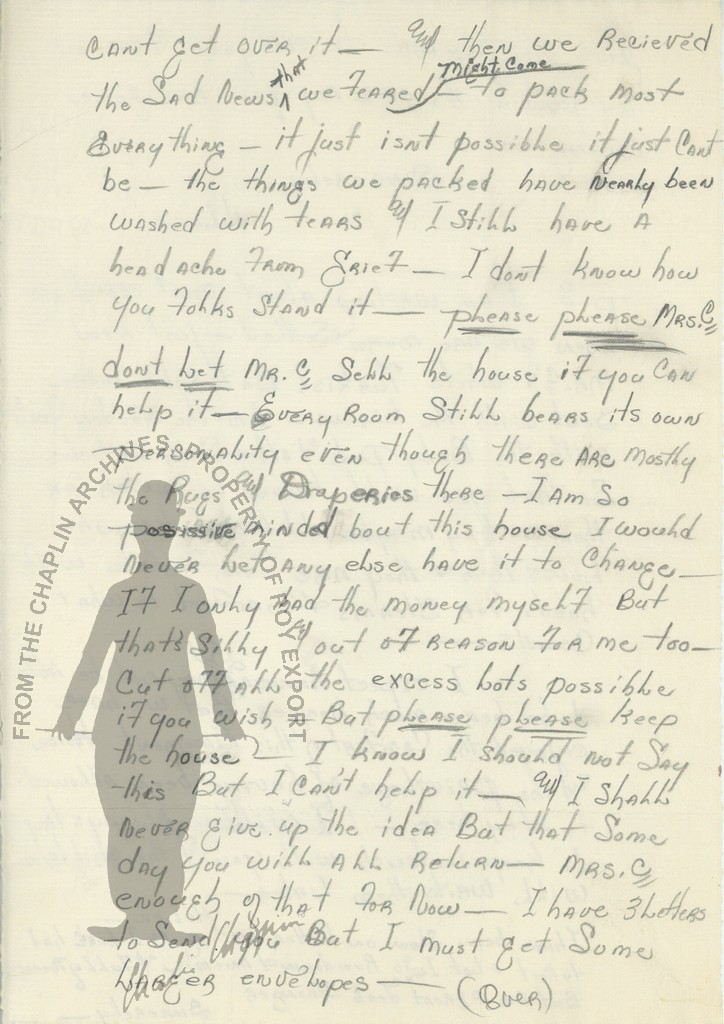 CANT GET OVER it — and then we Recieved
the Sad News that we FeaRed might come — to pack most
EveRything — it just isnt possible it just CanT
be — the things we packed have NeaRly been
washed with teaRs and I Still have A
headache FRom GRieF — I dont know how
you Folks Stand it — please please MRs. C
dont Let MR. C Sell the house iF you CAN
help it — EveRy Room Still beaRs its own
peRsonality even though theRe ARe mostly
the Rugs and DRapeRies theRe — I Am So
possissive minded bout this house I would
NeveR Let Any else have it to Change —
IF I only had the money myselF But
that's Silly and out oF Reason FoR me too —
Cut oFF All the excess Lots possible
iF you wish — But please please keep
the house — I know I should not Say
this But I Can't help it — and I shall
NeveR Give up the idea But that Some
day you will All RetuRn — MRs. C
enough oF that FoR Now — I have 3 LetteRs
to Send you But I must get Some
LaRGeR envelopes — (OveR)
FROM THE CHAPLIN ARCHIVES - PROPERTY OF ROY EXPORT